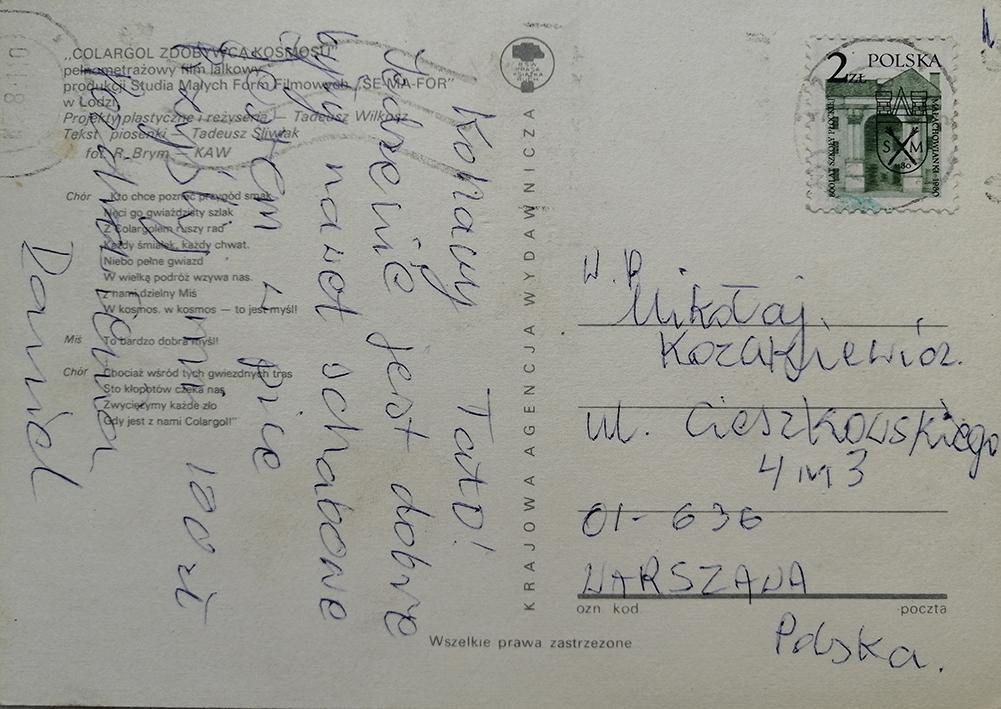 „COLARGOL ZDOBYWCĄ KOSMOSU"
pełnometrażowy film lalkowy
produkcji Studia Małych Form Filmowych „SE-MA-FOR"
w Łodzi
Projekty plastyczne i reżyseria — Tadeusz Wilkosz
Tekst piosenki — Tadeusz Śliwiak
fot. R. Brym — KAW
Chór „Kto chce poznać przygód smak
Nęci go gwiaździsty szlak
Z Colargolem ruszy rad
Każdy śmiałek, każdy chwat.
Niebo pełne gwiazd
W wielką podróż wzywa nas.
Z nami dzielny Miś
W kosmos, w kosmos — to jest myśl!
Miś To bardzo dobra myśl!
Chór Chociaż wśród tych gwiezdnych tras
Sto kłopotów czeka nas,
Zwyciężymy każde zło
Gdy jest z nami Colargol!"
Kohany Tato!
jest dobrze
były nawet schabowe
mi 100 zł
Daniel
KRAJOWA AGENCJA WYDAWNICZA
POLSKA
2 ZŁ
MAŁACHOWIANKI • 1980
S M
1180
W. P
Mikołaj
Kozakiewicz.
ul. Cieszkowskiego
4 m 3
01-636
WARSZAWA
ozn. kod poczta
Polska.
Wszelkie prawa zastrzeżone